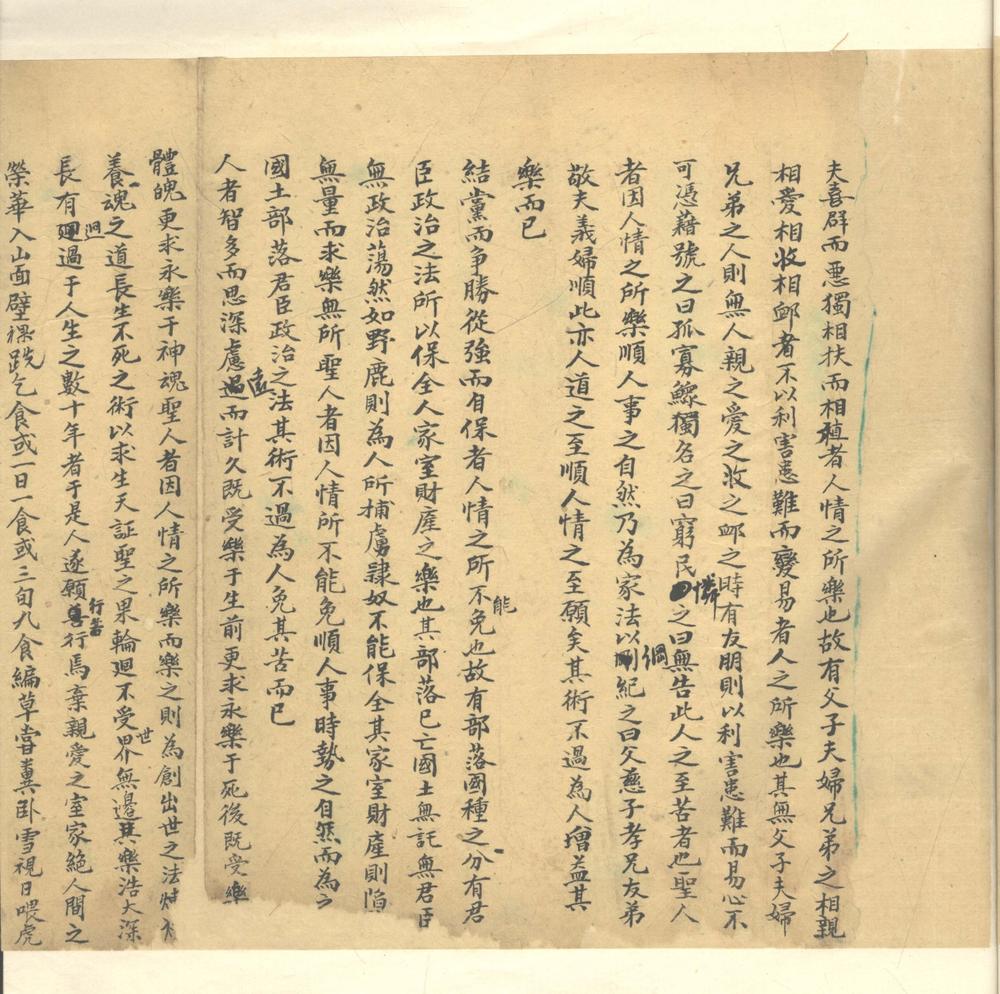 夫喜群而惡獨相扶而相植者人情之所樂也故有父子夫婦兄弟之相親
相愛相收相卹者不以利害患難而變易者人之所樂也其無父子夫婦
兄弟之人則無人親之愛之收之卹之時有友朋則以利害患難而易心不
可憑藉號之曰孤寡鰥獨名之曰窮民憐之曰無告此人之至苦者也聖人
者因人情之所樂順人事之自然乃為家法以綱紀之曰父慈子孝兄友弟
敬夫義婦順此亦人道之至順人情之至願矣其術不過為人增益其
樂而已
結黨而爭勝從強而自保者人情之所不能免也故有部落國種之分有君
臣政治之法所以保全人家室財產之樂也其部落已亡國土無託無君臣
無政治蕩然如野鹿則為人所捕虜隸奴不能保全其家室財產則陷
無量而求樂無所聖人者因人情所不能免順人事時勢之自然而為之
國土部落君臣政治之法其術不過為人免其苦而已
人者智多而思深慮遠而計久既受樂于生前更求永樂于死後既受樂
體魄更求永樂于神魂聖人者因人情之所樂而樂之則為創出世之法
養魂之道長生不死之術以求生天証聖之果輪廻不受世界無邊其樂浩大深
長有迥過于人生之數十年者于是人遂願行善行焉棄親愛之室家絕人間之
榮華入山面壁裸跣乞食或一日一食或三旬九食編草嘗糞卧雪視日喂虎